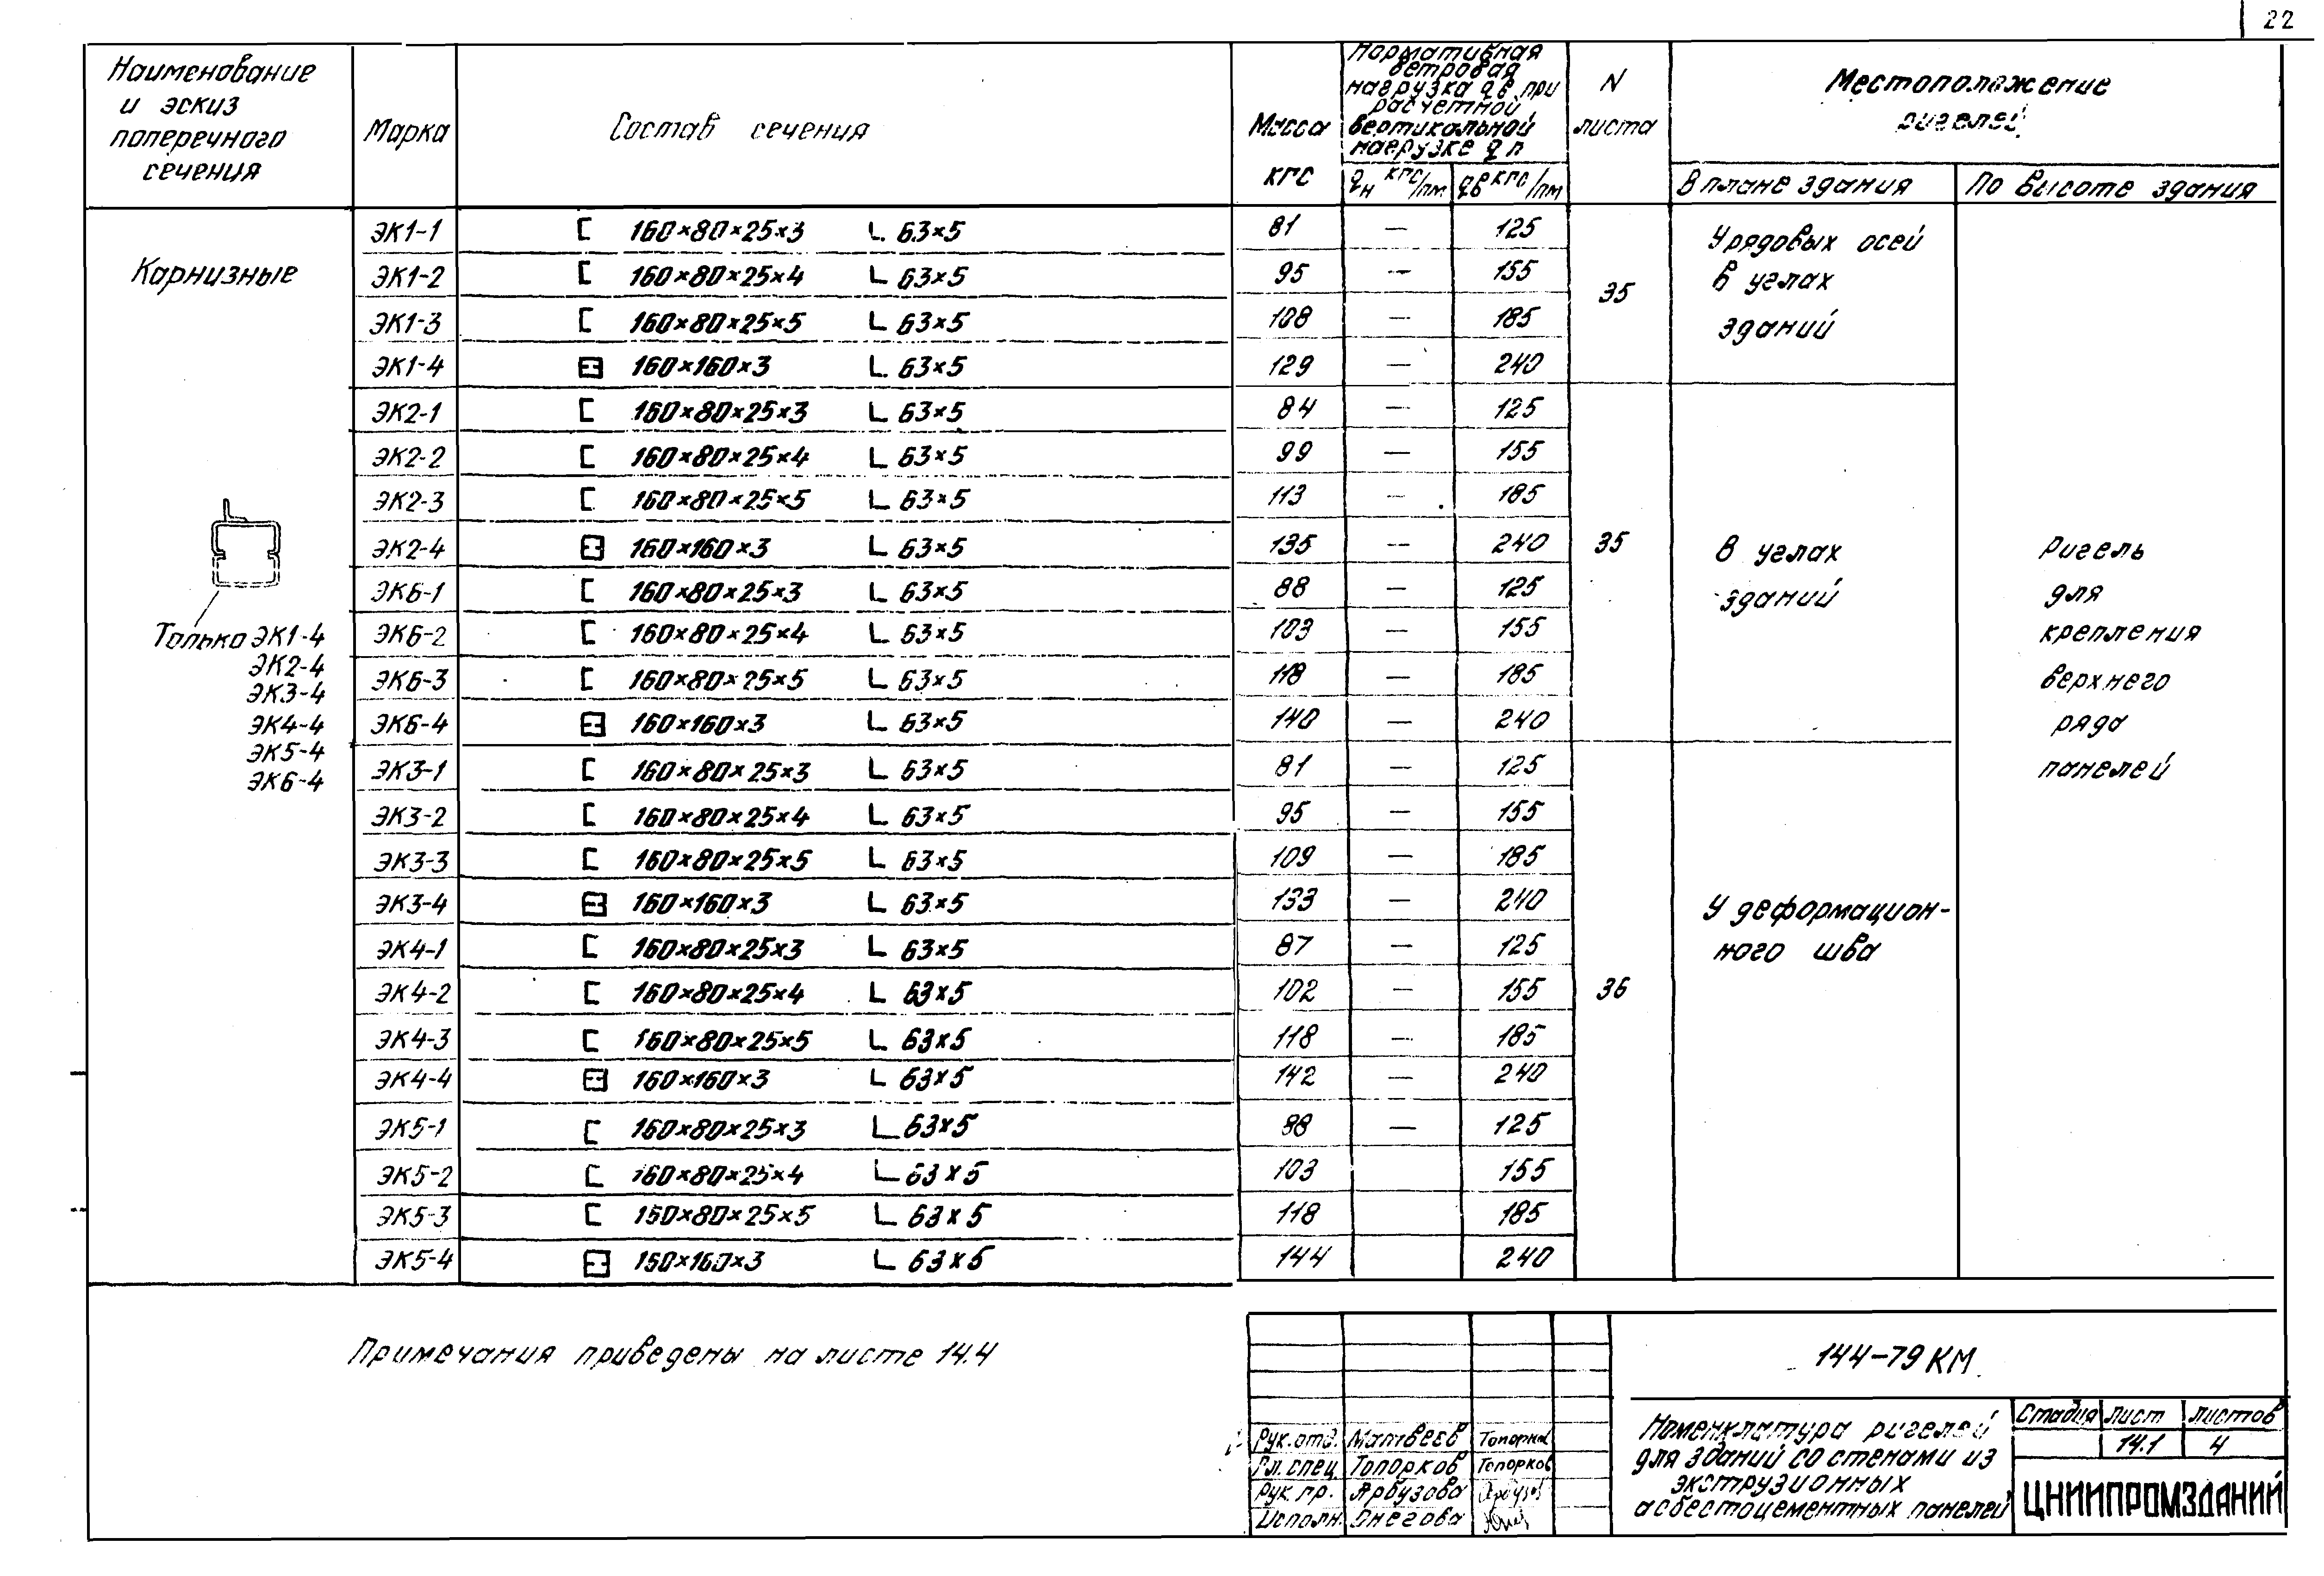 22
Наименование
и эскиз
поперечного
сечения
Марка
Состав сечения
Масса
кгс
Нормативная
ветровая
нагрузка qв при
расчетной
вертикальной
нагрузке qп
qн кгс/пм
qв кгс/пм
N
листа
Местоположение
ригелей
В плане здания
По высоте здания
Карнизные
Только ЭК1-4
ЭК2-4
ЭК3-4
ЭК4-4
ЭК5-4
ЭК6-4
ЭК1-1 [ 160×80×25×3 L 63×5 81 — 125
ЭК1-2 [ 160×80×25×4 L 63×5 95 — 155
ЭК1-3 [ 160×80×25×5 L 63×5 108 — 185
ЭК1-4 160×160×3 L 63×5 129 — 240
35
У рядовых осей
в углах
зданий
ЭК2-1 [ 160×80×25×3 L 63×5 84 — 125
ЭК2-2 [ 160×80×25×4 L 63×5 99 — 155
ЭК2-3 [ 160×80×25×5 L 63×5 113 — 185
ЭК2-4 160×160×3 L 63×5 135 — 240
ЭК6-1 [ 160×80×25×3 L 63×5 88 — 125
ЭК6-2 [ 160×80×25×4 L 63×5 103 — 155
ЭК6-3 [ 160×80×25×5 L 63×5 118 — 185
ЭК6-4 160×160×3 L 63×5 140 — 240
35
В углах
зданий
ЭК3-1 [ 160×80×25×3 L 63×5 81 — 125
ЭК3-2 [ 160×80×25×4 L 63×5 95 — 155
ЭК3-3 [ 160×80×25×5 L 63×5 109 — 185
ЭК3-4 160×160×3 L 63×5 133 — 240
ЭК4-1 [ 160×80×25×3 L 63×5 87 — 125
ЭК4-2 [ 160×80×25×4 L 63×5 102 — 155
ЭК4-3 [ 160×80×25×5 L 63×5 118 — 185
ЭК4-4 160×160×3 L 63×5 142 — 240
ЭК5-1 [ 160×80×25×3 L 63×5 88 — 125
ЭК5-2 [ 160×80×25×4 L 63×5 103 155
ЭК5-3 [ 160×80×25×5 L 63×5 118 185
ЭК5-4 160×160×3 L 63×5 144 240
36
У деформацион-
ного шва
Ригель
для
крепления
верхнего
ряда
панелей
Примечания приведены на листе 14.4
144-79 КМ
Рук. отд. Матвеев Топорков
Гл. спец Топорков Топорков
Рук. гр. Арбузова
Исполн. Онегова
Номенклатура ригелей
для зданий со стенами из
экструзионных
асбестоцементных панелей
Стадия Лист Листов
14.1 4
ЦНИИПРОМЗДАНИЙ